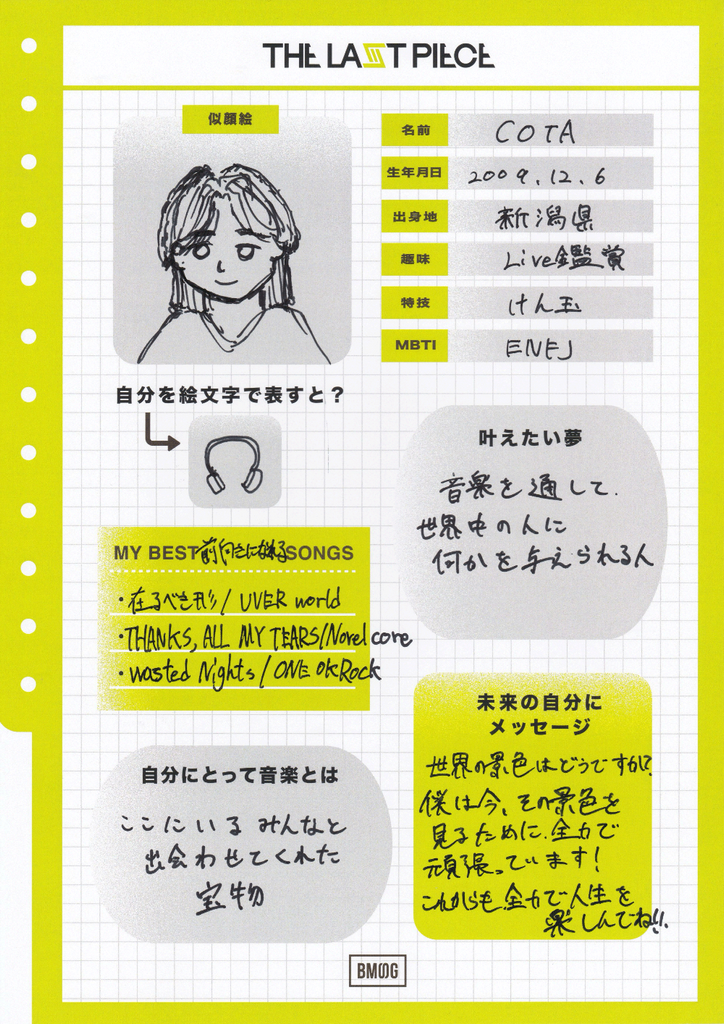 THE LAST PIECE
似顔絵
名前 COTA
生年月日 2009.12.6
出身地 新潟県
趣味 Live鑑賞
特技 けん玉
MBTI ENFJ
自分を絵文字で表すと？
叶えたい夢
音楽を通して.
世界中の人に
何かを与えられる人
MY BEST 前向きになれる SONGS
・在るべき形 / UVER world
・THANKS, ALL MY TEARS/Novel core
・Wasted Nights / ONE OK Rock
未来の自分に
メッセージ
世界の景色はどうですか?
僕は今、その景色を
見るために.全力で
頑張っています!
これからも.全力で人生を
楽しんでね!!
自分にとって音楽とは
ここにいる みんなと
出会わせてくれた
宝物
BMSG